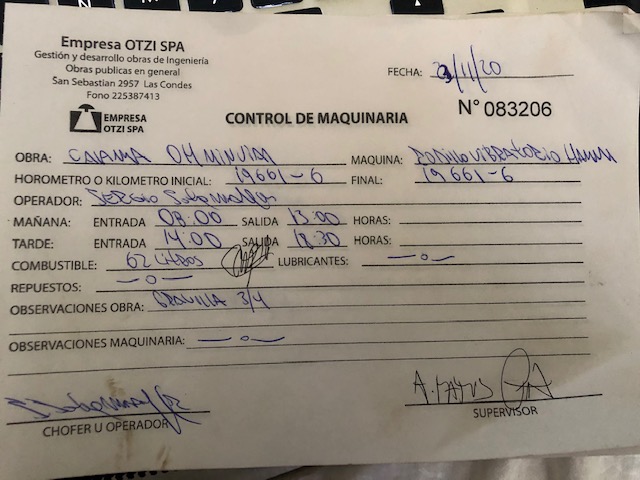 Empresa OTZI SPA
Gestión y desarrollo obras de ingeniería
Obras públicas en general
San Sebastian 2957 Las Condes
Fono 225387413
EMPRESA
OTZI SPA
CONTROL DE MAQUINARIA
FECHA: /11/20
N° 083206
OBRA: MAQUINA: RODILLO VIBRATORIO HAMM
HOROMETRO O KILOMETRO INICIAL: 19661-6 FINAL: 19661-6
OPERADOR: SERGIO
MAÑANA: ENTRADA 08:00 SALIDA 13:00 HORAS:
TARDE: ENTRADA 14:00 SALIDA 18:30 HORAS:
COMBUSTIBLE: 62 LUBRICANTES: -0-
REPUESTOS: -0-
OBSERVACIONES OBRA: GRAVILLA 3/4
OBSERVACIONES MAQUINARIA: -0-
CHOFER U OPERADOR
SUPERVISOR